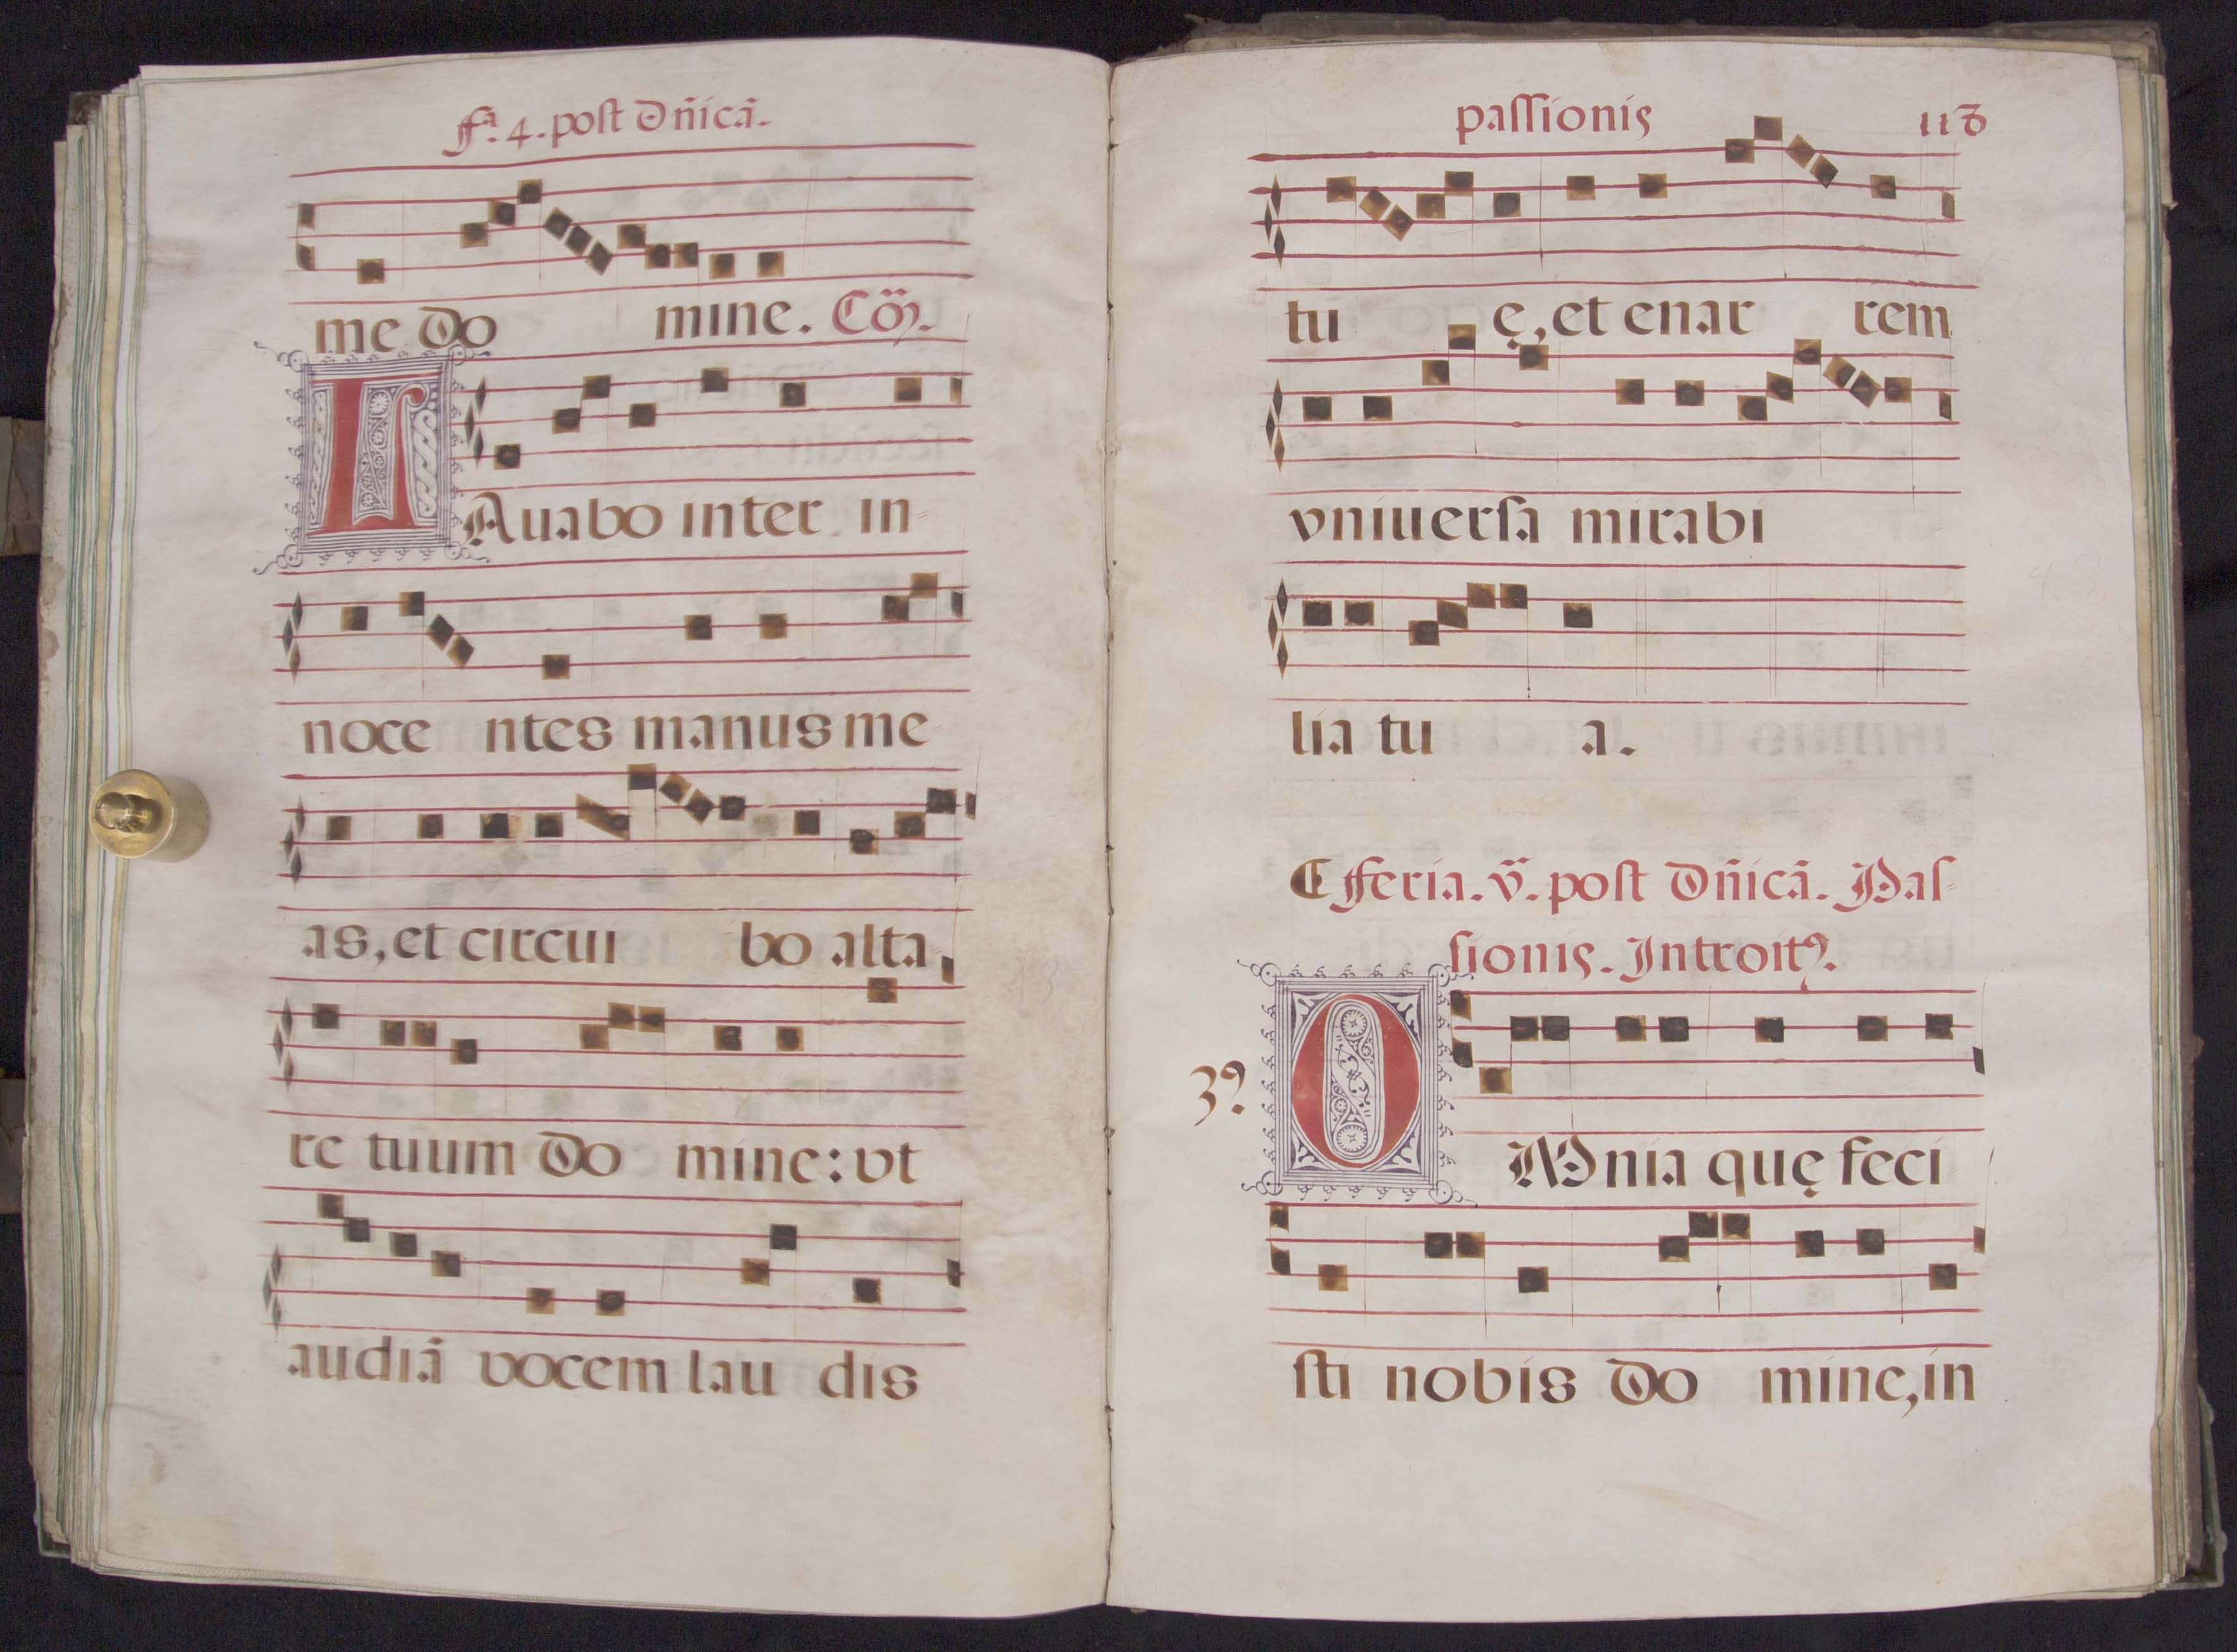 fª. 4. post Dñicã.
me do mine. Cõ.
LAuabo inter in-
noce ntes manus me-
as, et circui bo alta-
re tuum do mine: vt
audiã vocem lau dis
passionis 118
tu ę, et enar rem
vniuersa mirabi
lia tu a.
feria. v̈. post Dñicã. Pas-
sionis. Introitꝰ.
3?
OMnia quę feci
sti nobis do mine, in